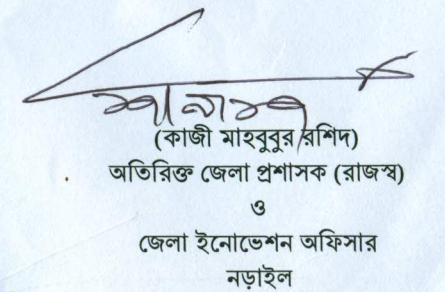 (কাজী মাহবুবুর রশিদ)
অতিরিক্ত জেলা প্রশাসক (রাজস্ব)
ও
জেলা ইনোভেশন অফিসার
নড়াইল